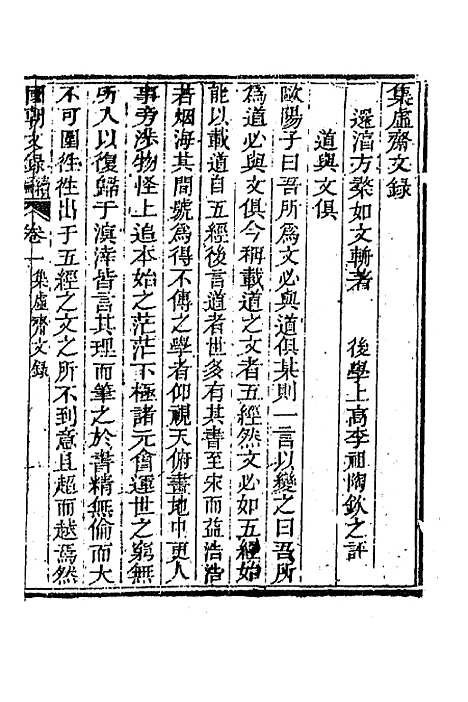 集虛齋文録
還淳方棻如文輈著　後學上高李祖陶欽之評
道與文俱
歐陽子曰吾所爲文必與道俱某則一言以變之曰吾所
爲道必與文俱今稱載道之文者五經然文必如五經始
能以載道自五經後言道者世多有其書至宋而益浩浩
若烟海其間號爲得不傳之學者仰視天俯畫地中更人
事旁涉物怪上追本始之茫茫下極諸元會運世之窮無
所入以復歸于溟涬皆言其理而筆之於書精無倫而大
不可圍徃徃出于五經之文之所不到意且超而越焉然
國朝文録續編　卷一集虛齋文録